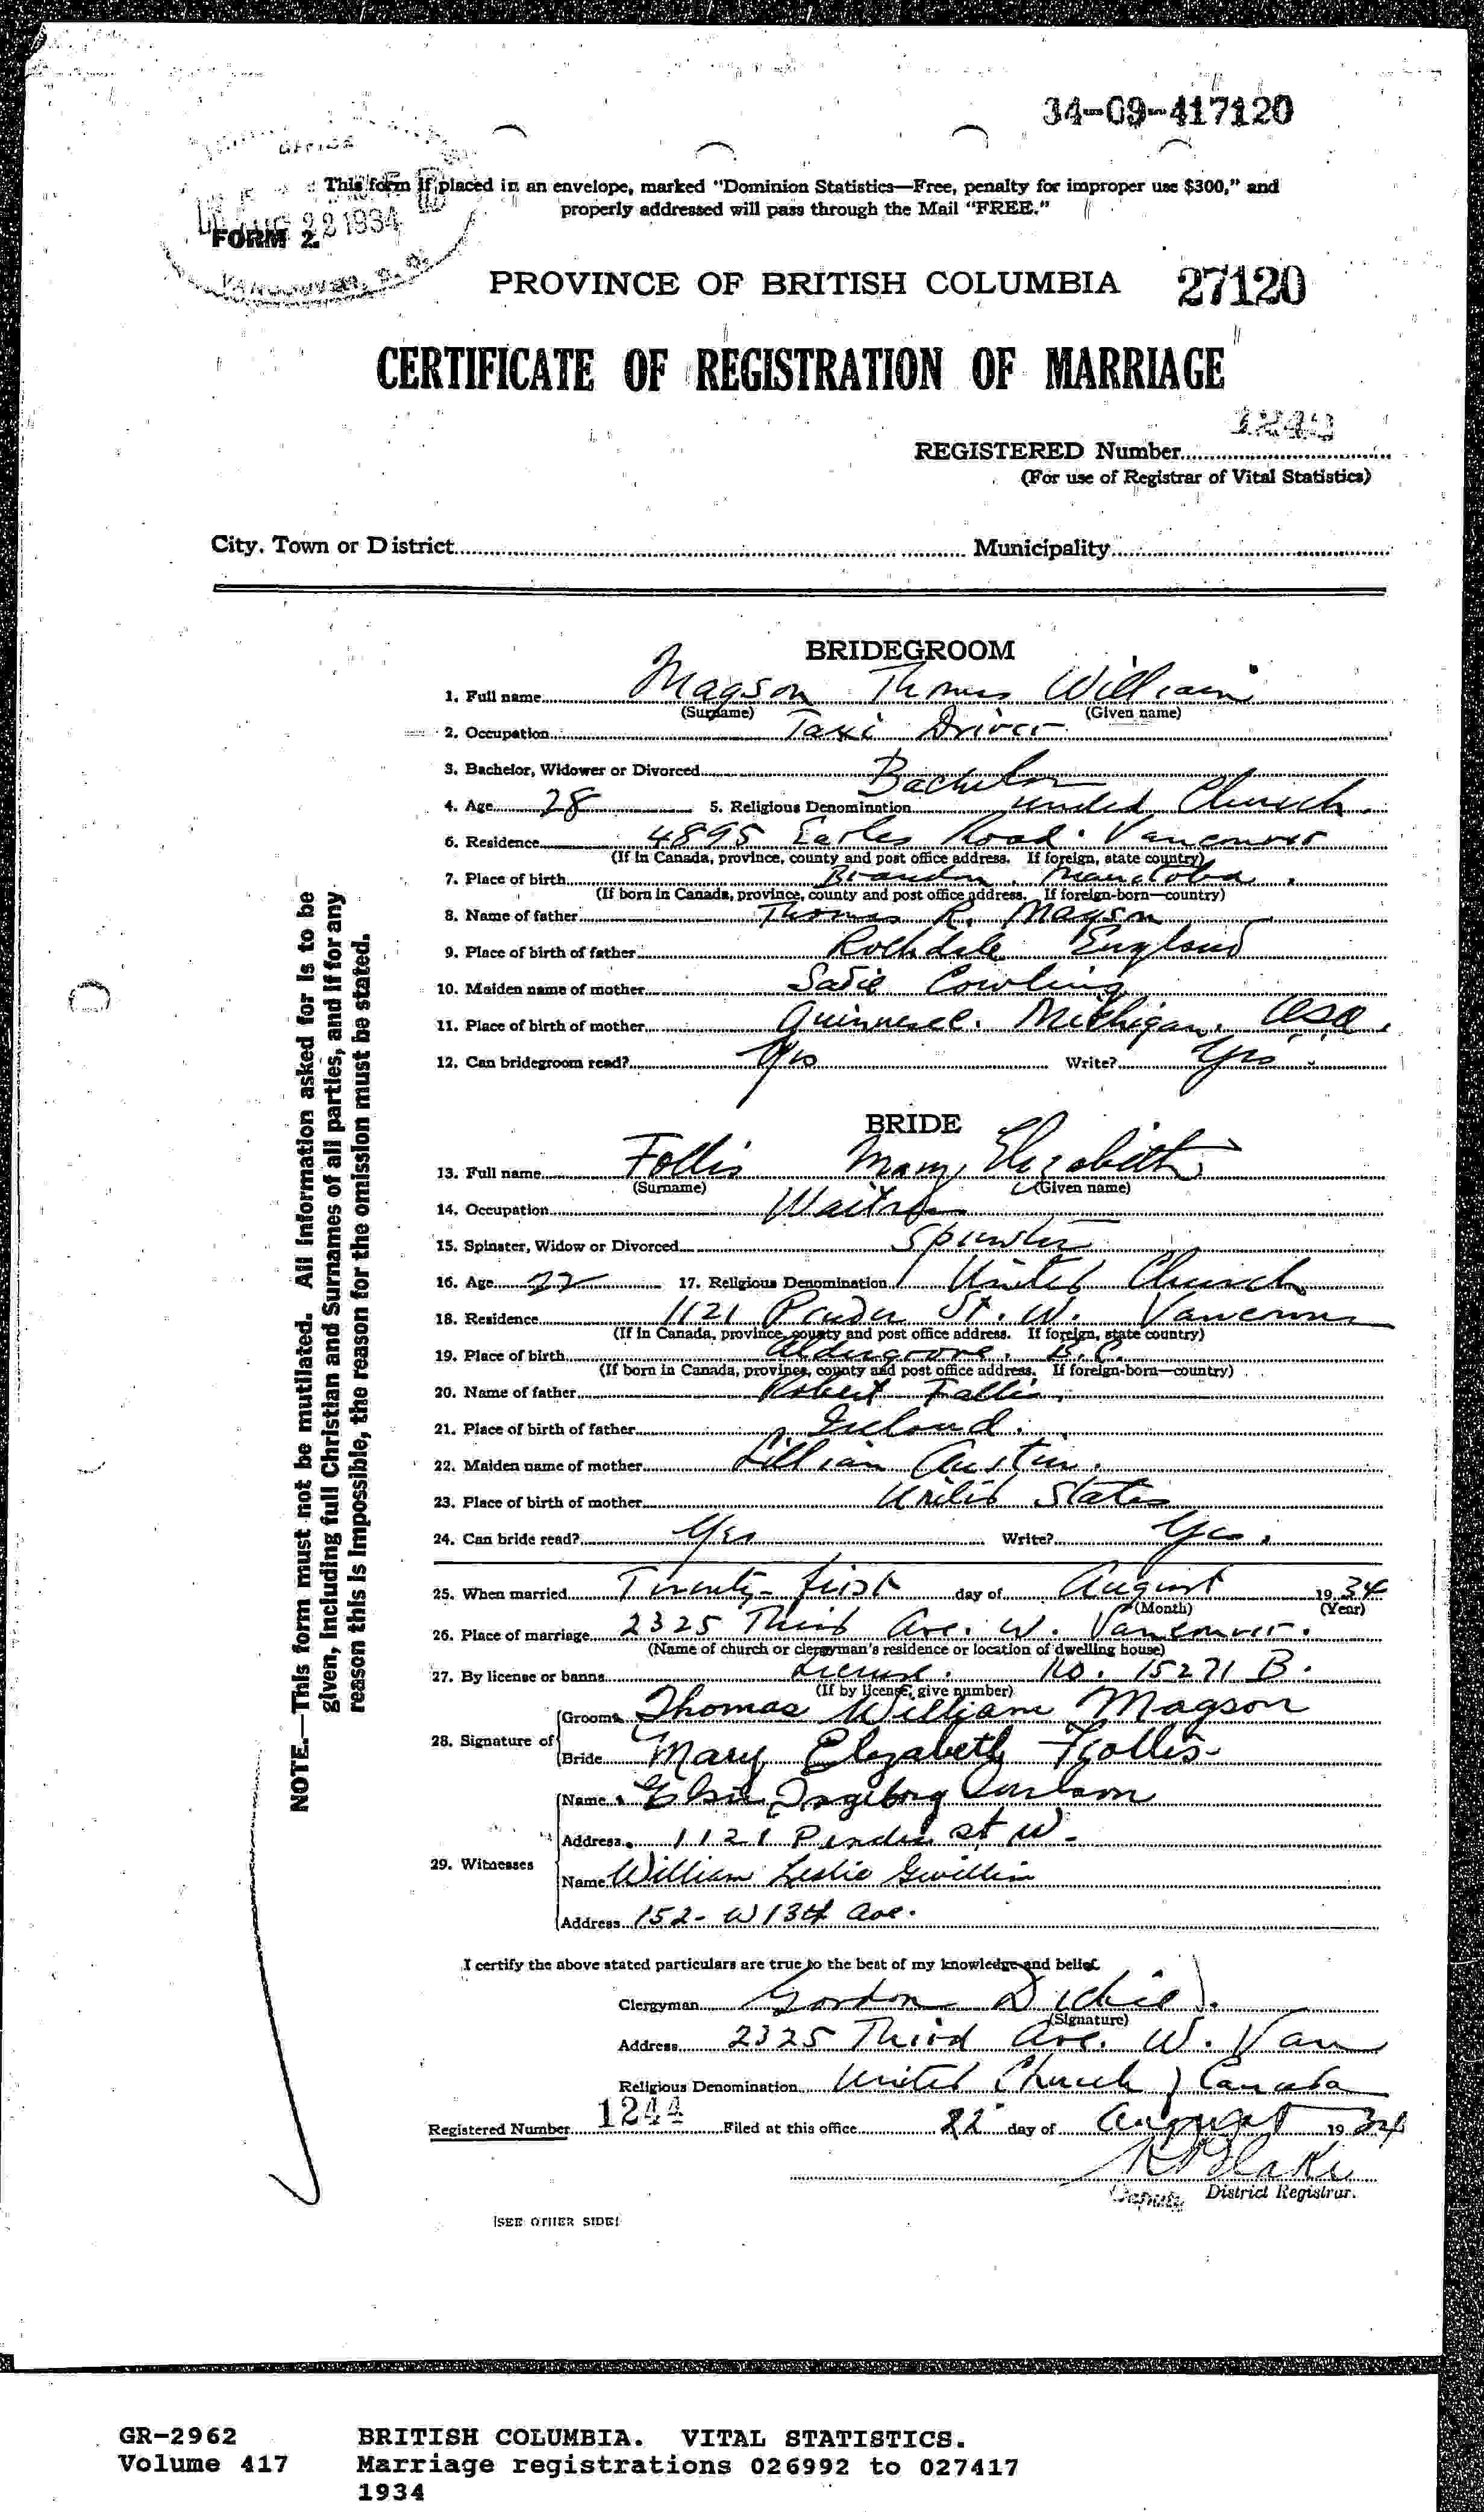 34-09-417120
This form if placed in an envelope, marked "Dominion Statistics—Free, penalty for improper use $300," and
properly addressed will pass through the Mail "FREE."
AUG 22 1934
FORM 2.
VANCOUVER, B. C.
PROVINCE OF BRITISH COLUMBIA 27120
CERTIFICATE OF REGISTRATION OF MARRIAGE
REGISTERED Number
(For use of Registrar of Vital Statistics)
City, Town or District Municipality
NOTE.—This form must not be mutilated. All information asked for is to be
given, including full Christian and Surnames of all parties, and if for any
reason this is impossible, the reason for the omission must be stated.
BRIDEGROOM
1. Full name Magson Thomas William
(Surname) (Given name)
2. Occupation Taxi Driver
3. Bachelor, Widower or Divorced Bachelor
4. Age 28 5. Religious Denomination United Church
6. Residence 4895 Earles Road. Vancouver
(If in Canada, province, county and post office address. If foreign, state country)
7. Place of birth Brandon, Manitoba.
(If born in Canada, province, county and post office address. If foreign-born—country)
8. Name of father Thomas R. Magson
9. Place of birth of father Rochdale England
10. Maiden name of mother Sadie Cowling
11. Place of birth of mother Quinnesec. Michigan. USA.
12. Can bridegroom read? Yes Write? Yes.
BRIDE
13. Full name Follis Mary Elizabeth
(Surname) (Given name)
14. Occupation Waitress
15. Spinster, Widow or Divorced Spinster
16. Age 22 17. Religious Denomination United Church
18. Residence 1121 Pender St. W. Vancouver
(If in Canada, province, county and post office address. If foreign, state country)
19. Place of birth Aldergrove. B.C.
(If born in Canada, province, county and post office address. If foreign-born—country)
20. Name of father Robert Follis.
21. Place of birth of father Ireland.
22. Maiden name of mother Lillian Austin.
23. Place of birth of mother United States
24. Can bride read? Yes Write? Yes.
25. When married Twenty-first day of August 1934
(Month) (Year)
26. Place of marriage 2325 Third Ave. W. Vancouver.
(Name of church or clergyman's residence or location of dwelling house)
27. By license or banns License. No. 15271 B.
(If by license, give number)
28. Signature of
Groom Thomas William Magson
Bride Mary Elizabeth Follis
29. Witnesses
Name Elsie Ingeborg Carlson
Address 1121 Pender St W.
Name William Leslie Gwillim
Address 152- W 13th Ave.
I certify the above stated particulars are true to the best of my knowledge and belief.
Clergyman Gordon Dickie.
(Signature)
Address 2325 Third Ave. W. Van
Religious Denomination United Church of Canada
Registered Number 1244 Filed at this office 22 day of August 1934
Blake
Deputy District Registrar.
[SEE OTHER SIDE]
GR-2962 BRITISH COLUMBIA. VITAL STATISTICS.
Volume 417 Marriage registrations 026992 to 027417
1934